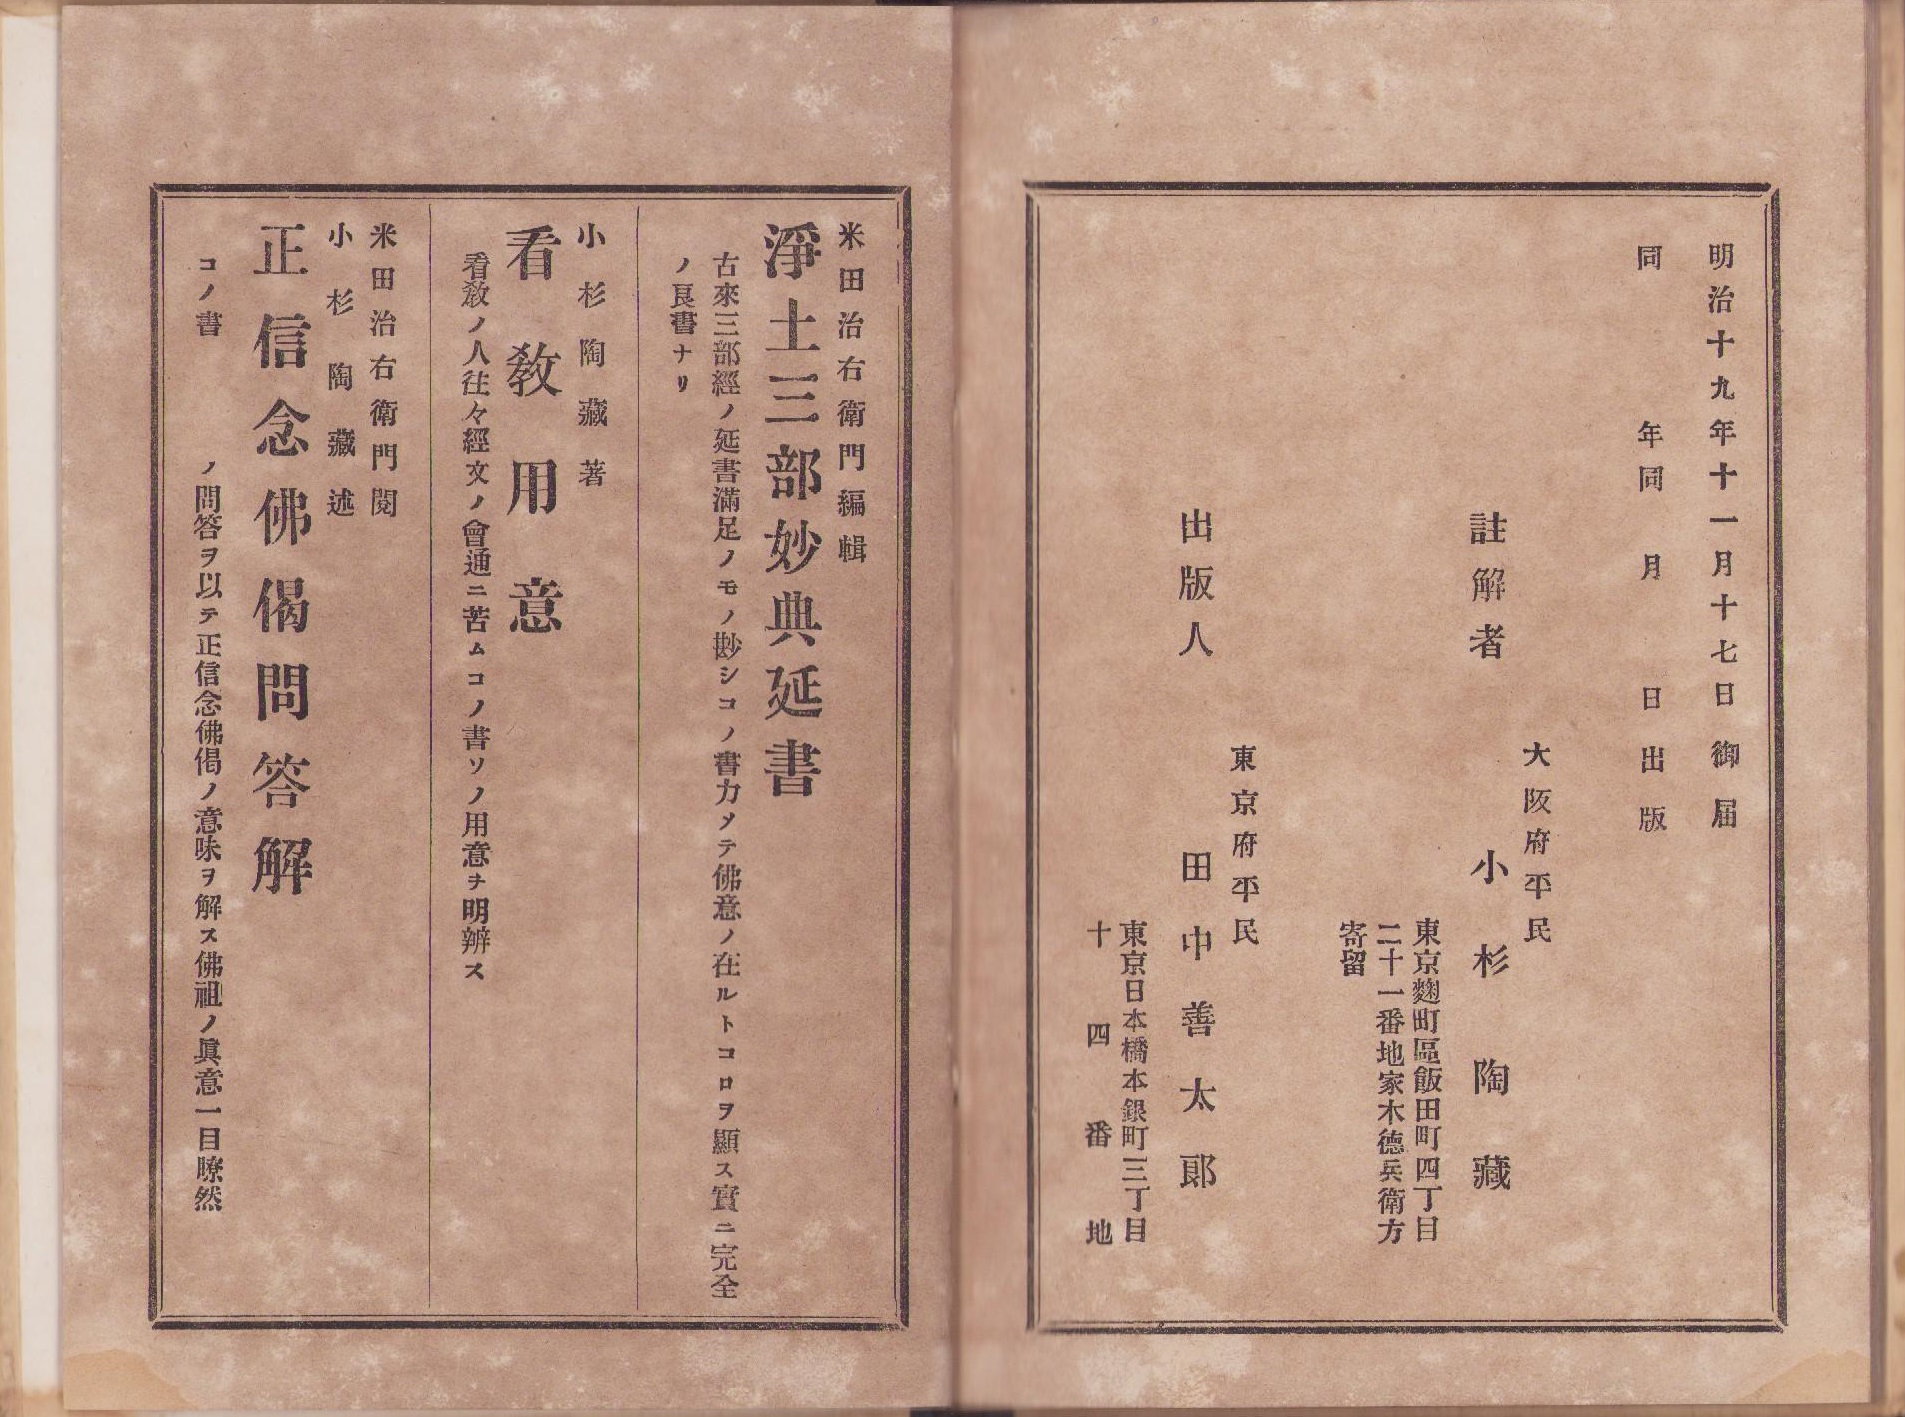 明治十九年十一月十七日御届
同年同月日出版
大阪府平民
註解者 小杉陶藏
東京麴町區飯田町四丁目
二十一番地家木德兵衛方
寄留
東京府平民
出版人 田中善太郎
東京日本橋本銀町三丁目
十四番地
米田治右衛門編輯
淨土三部妙典延書
古來三部經ノ延書滿足ノモノ尠シコノ書力メテ佛意ノ在ルトコロヲ顯ス實ニ完全
ノ良書ナリ
小杉陶藏著
看教用意
看教ノ人往々經文ノ會通ニ苦ムコノ書ソノ用意ヲ明辨ス
米田治右衛門閱
小杉陶藏述
正信念佛偈問答解
コノ書 ノ問答ヲ以テ正信念佛偈ノ意味ヲ解ス佛祖ノ眞意一目瞭然